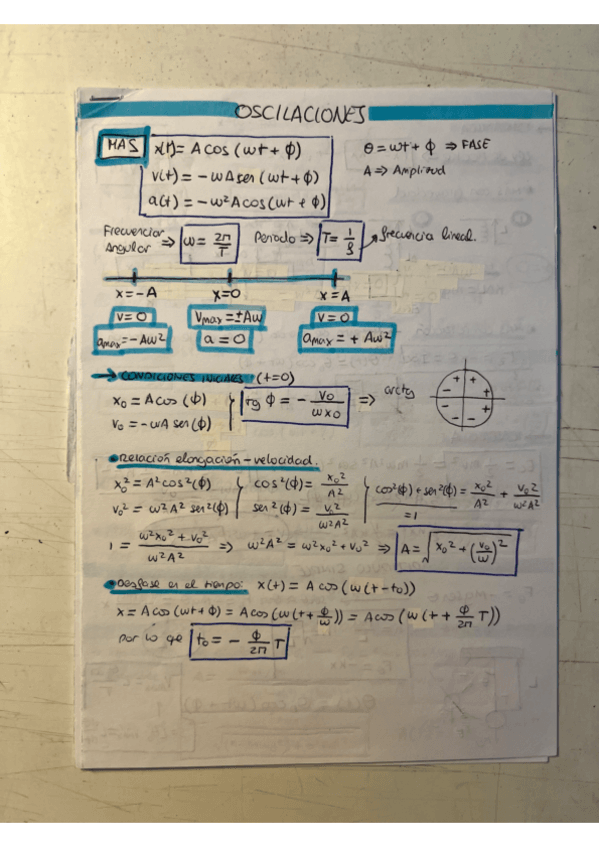 OSCILACIONES
MAS
x(t) = A cos (ωt + ϕ)
v(t) = -ωA sen (ωt + ϕ)
a(t) = -ω² A cos (ωt + ϕ)
θ = ωt + ϕ ⇒ FASE
A ⇒ Amplitud
Frecuencia Angular ⇒ ω = 2π/T
Periodo ⇒ T = 1/f → frecuencia lineal.
x = -A x=0 x = A
v = 0 Vmax = ±Aω v = 0
amax = -Aω² a = 0 amax = + Aω²
→ CONDICIONES INICIALES (t=0)
x₀ = A cos (ϕ)
v₀ = -ωA sen (ϕ)
tg ϕ = - v₀/ωx₀ ⇒ arctg
+ + + +
- - - -
• Relación elongación - velocidad.
x₀² = A² cos² (ϕ)
v₀² = ω² A² sen² (ϕ)
cos² (ϕ) = x₀²/A²
sen² (ϕ) = v₀²/ω²A²
cos² (ϕ) + sen² (ϕ) = x₀²/A² + v₀²/ω²A²
=1
1 = (ω²x₀² + v₀²)/ω²A² ⇒ ω²A² = ω²x₀² + v₀² ⇒ A = √(x₀² + (v₀/ω)²)
• Desfase en el tiempo: x(t) = A cos (ω(t - t₀))
x = A cos (ωt + ϕ) = A cos (ω(t + ϕ/ω)) = A cos (ω(t + ϕ/2π T))
por lo que t₀ = - ϕ/2π T